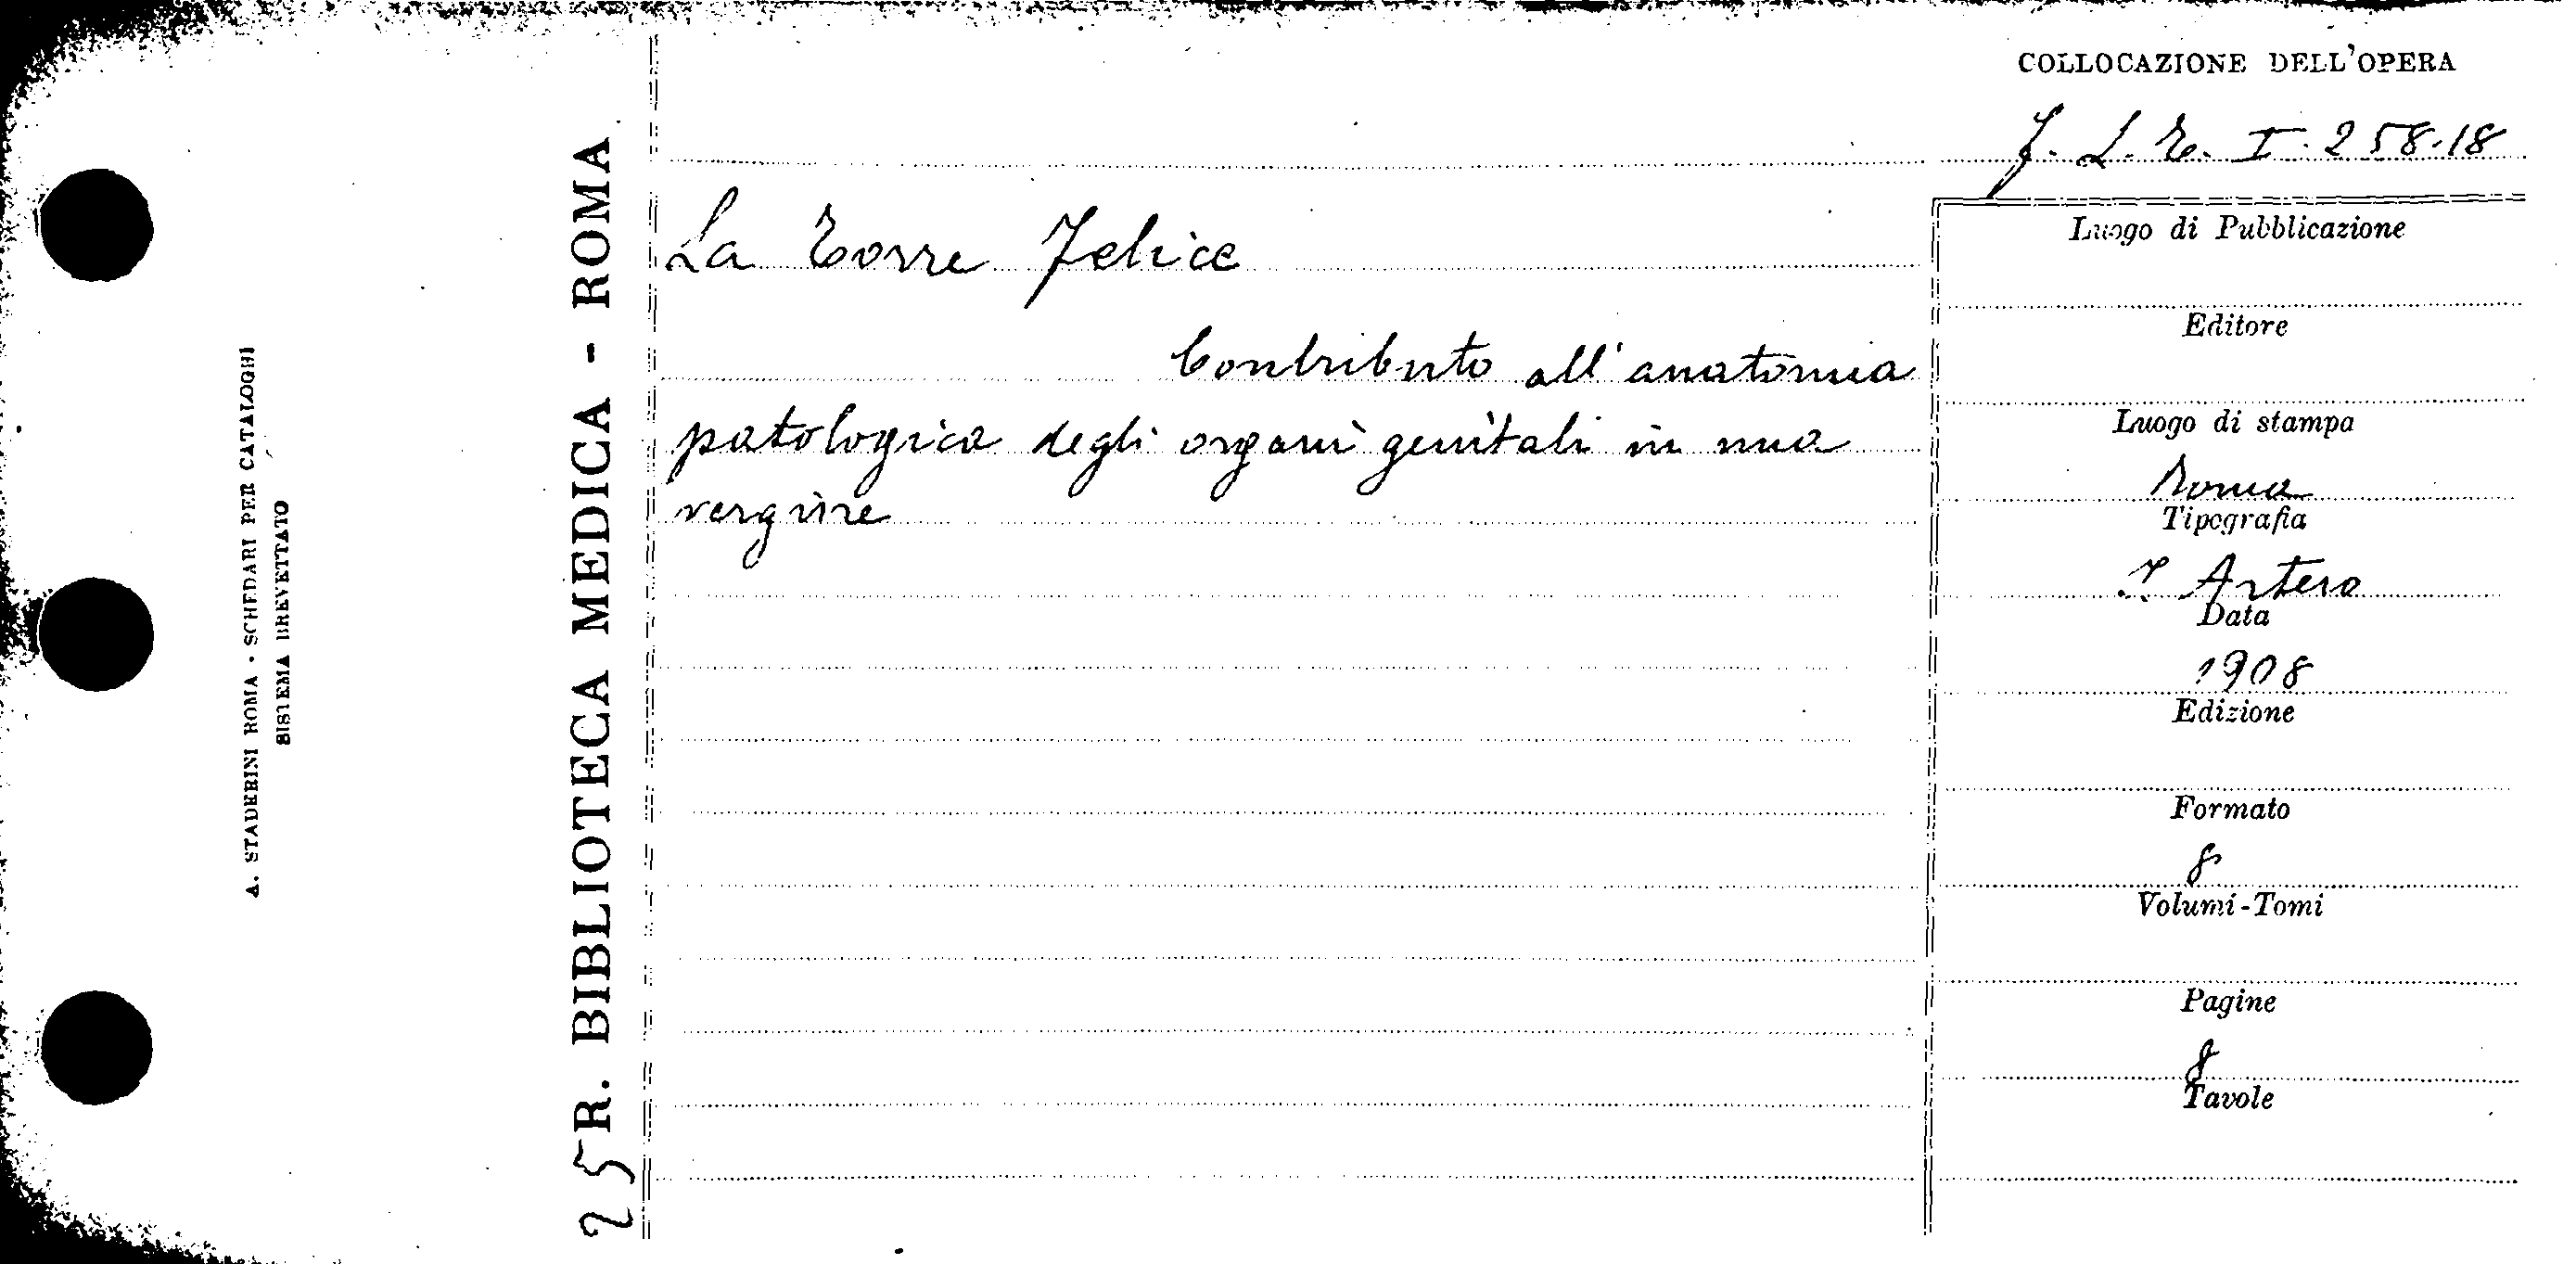 A. STADERINI ROMA - SCHEDARI PER CATALOGHI
SISTEMA BREVETTATO
25
R. BIBLIOTECA MEDICA - ROMA
La Torre Felice
Contributo all'anatomia
patologica degli organi genitali in una
vergine
COLLOCAZIONE DELL'OPERA
I. 258.18
Luogo di Pubblicazione
Editore
Luogo di stampa
Roma
Tipografia
Artero
Data
1908
Edizione
Formato
8
Volumi-Tomi
Pagine
8
Tavole